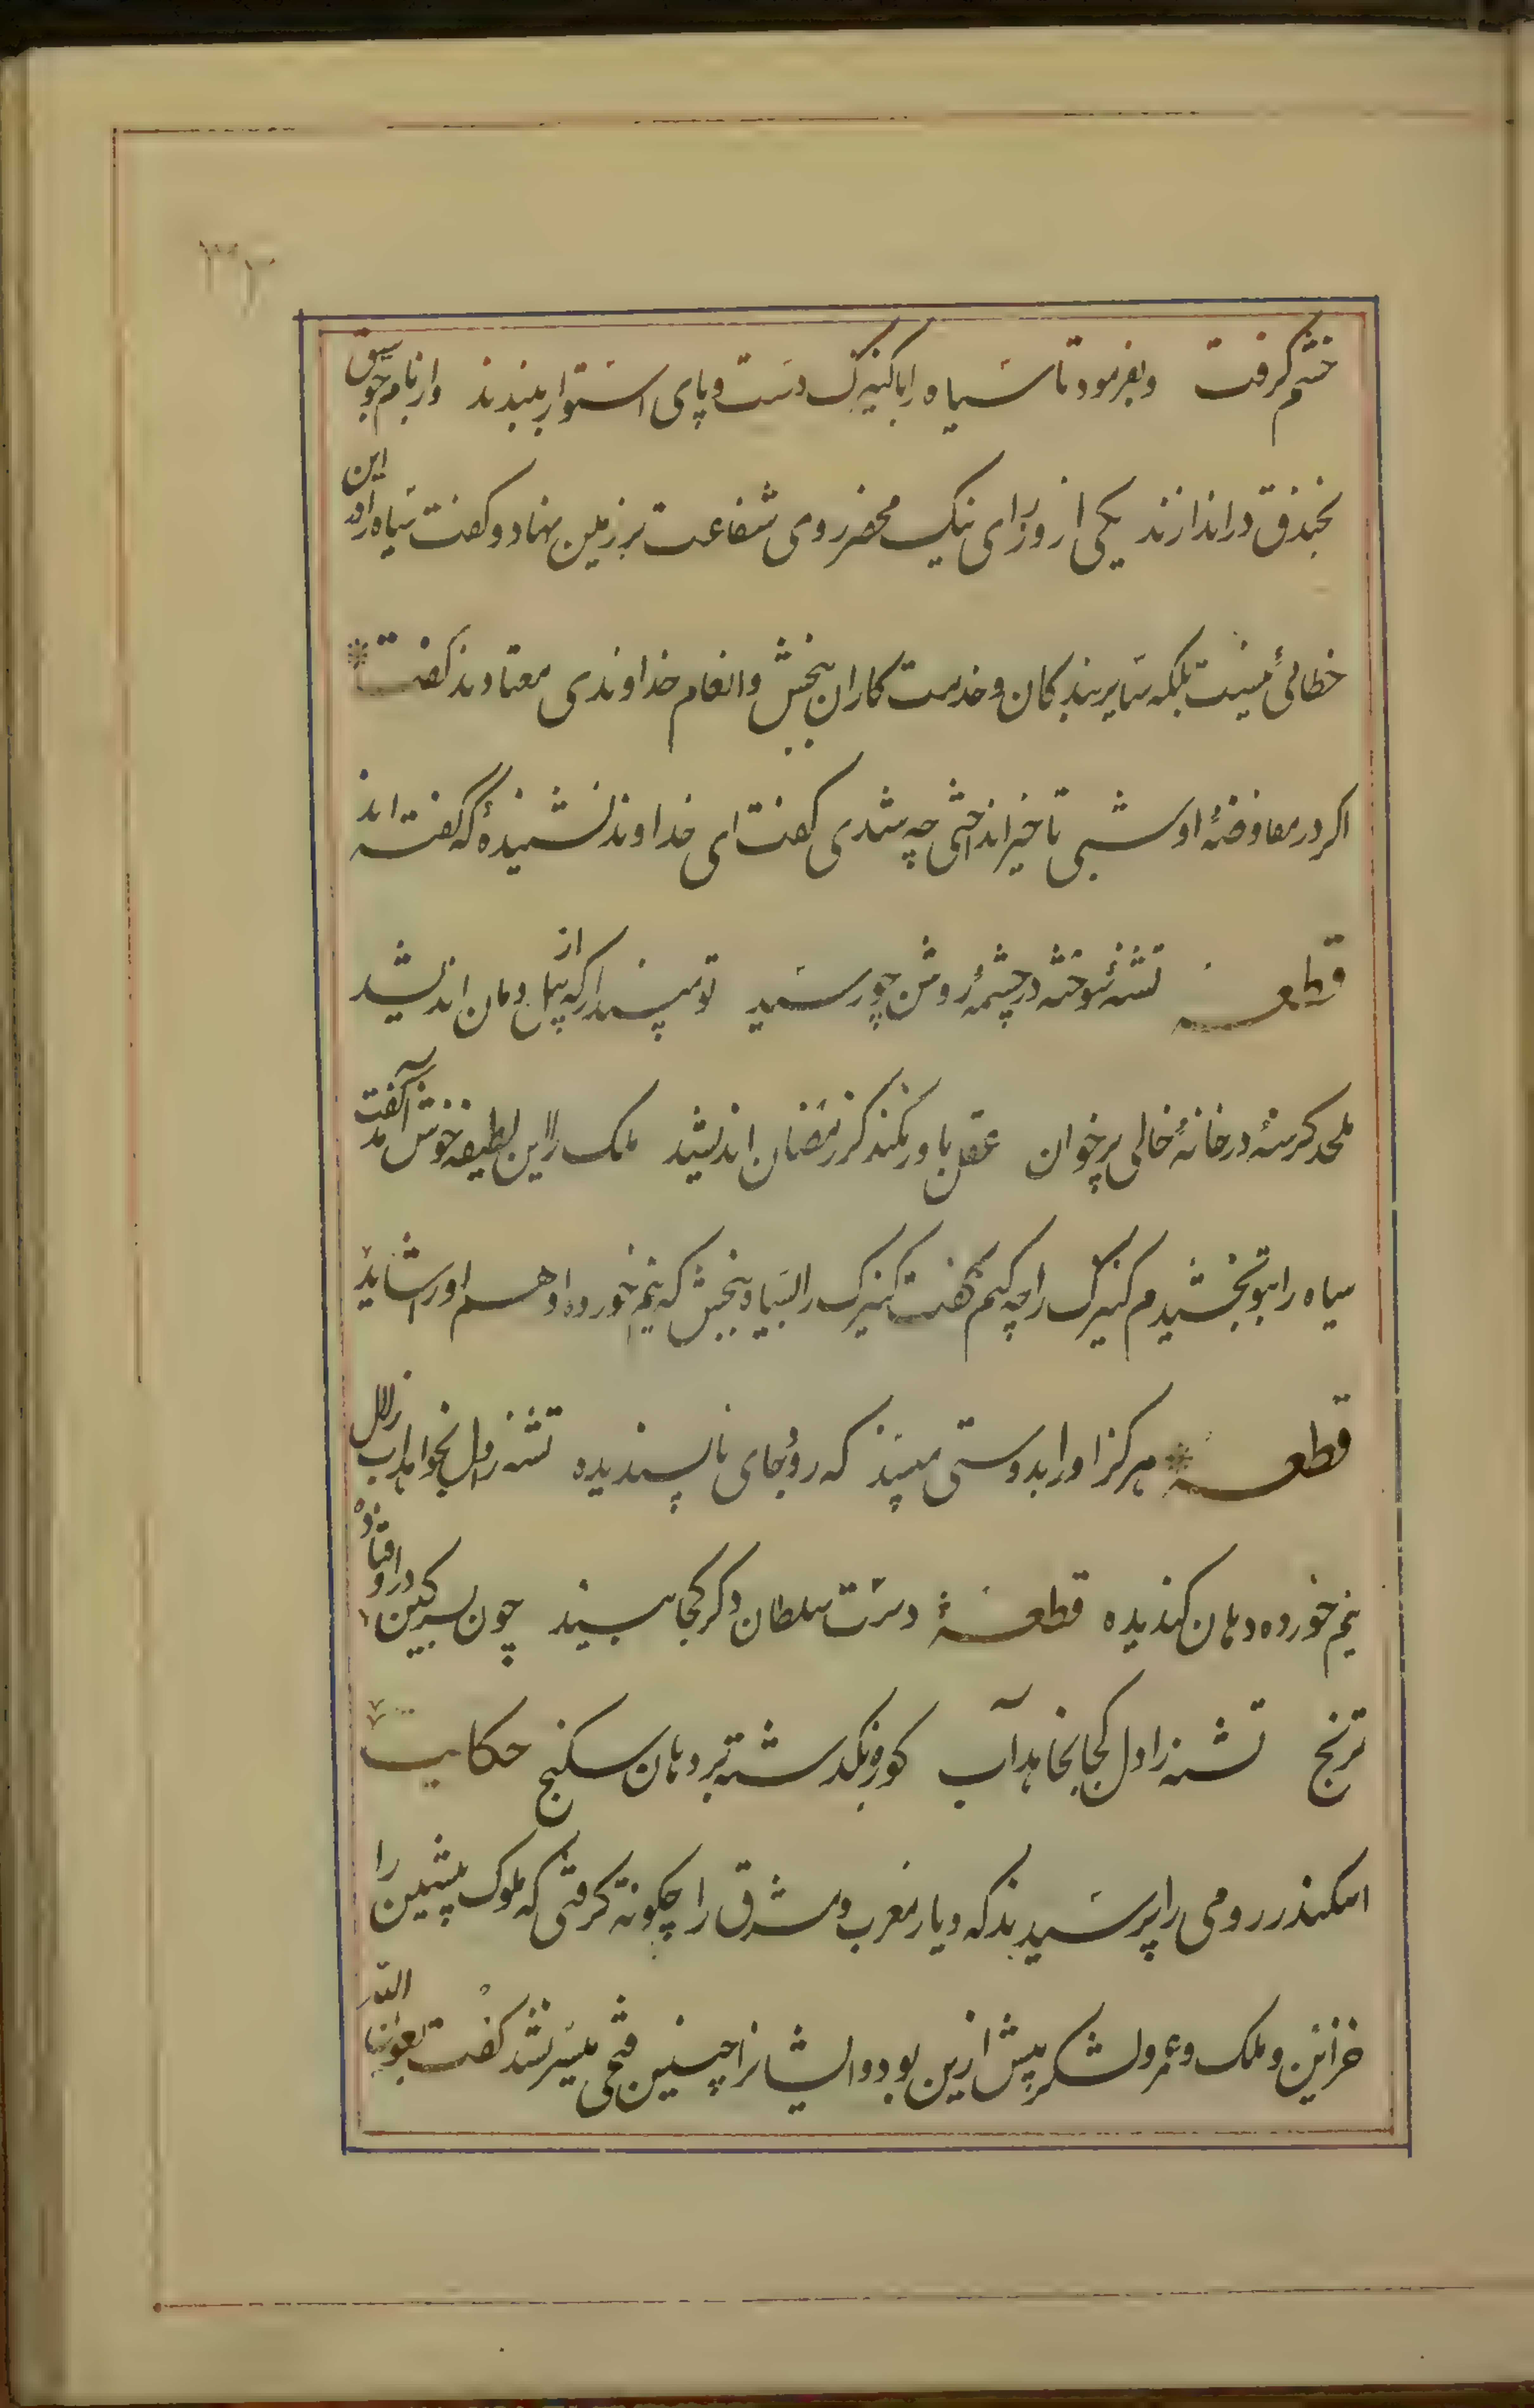 خشم گرفت وبفرمود تا سیاه را با کنیزک دست و پای استوار ببندند واز بام جوسق
بخندق در اندازند یکی از وزرای نیک محضر روی شفاعت بر زمین نهاد و گفت سیاه را در این
خطائی نیست بلکه سایر بندگان و خدمت کاران ببخش و انعام خداوندی معتادند گفت
اگر در مفاوضهٔ او شبی تأخیر انداختی چه شدی گفت ای خداوند نشنیدهٔ که گفته اند
قطعه تشنهٔ سوخته در چشمهٔ روشن چو رسید تو مپندار که از پیل دمان اندیشد
ملحد گرسنهٔ در خانهٔ خالی پر خوان عقل باور نکند کز رمضان اندیشد ملک را این لطیفه خوش آمد گفت
سیاه را بتو بخشیدم کنیزک را چه کنم گفت کنیزک را بسیاه ببخش که نیم خورده او هم او را شاید
قطعه هرگز او را بدوستی مپسند که رود جای ناپسندیده تشنه را دل نخواهد آب زلال
نیم خورده دهان گندیده قطعهٔ دست سلطان دگر کجا بیند چون بسرگین در اوفتاده
ترنج تشنه را دل کجا بخاهد آب کوزه بگذشته بر دهان سکنج حکایت
اسکندر رومی را پرسیدند که دیار مغرب و مشرق را چگونه گرفتی که ملوک پیشین را
خزائن و ملک و عمر و لشکر پیش ازین بود و ایشانرا چنین فتحی میسر نشد گفت بعون الله